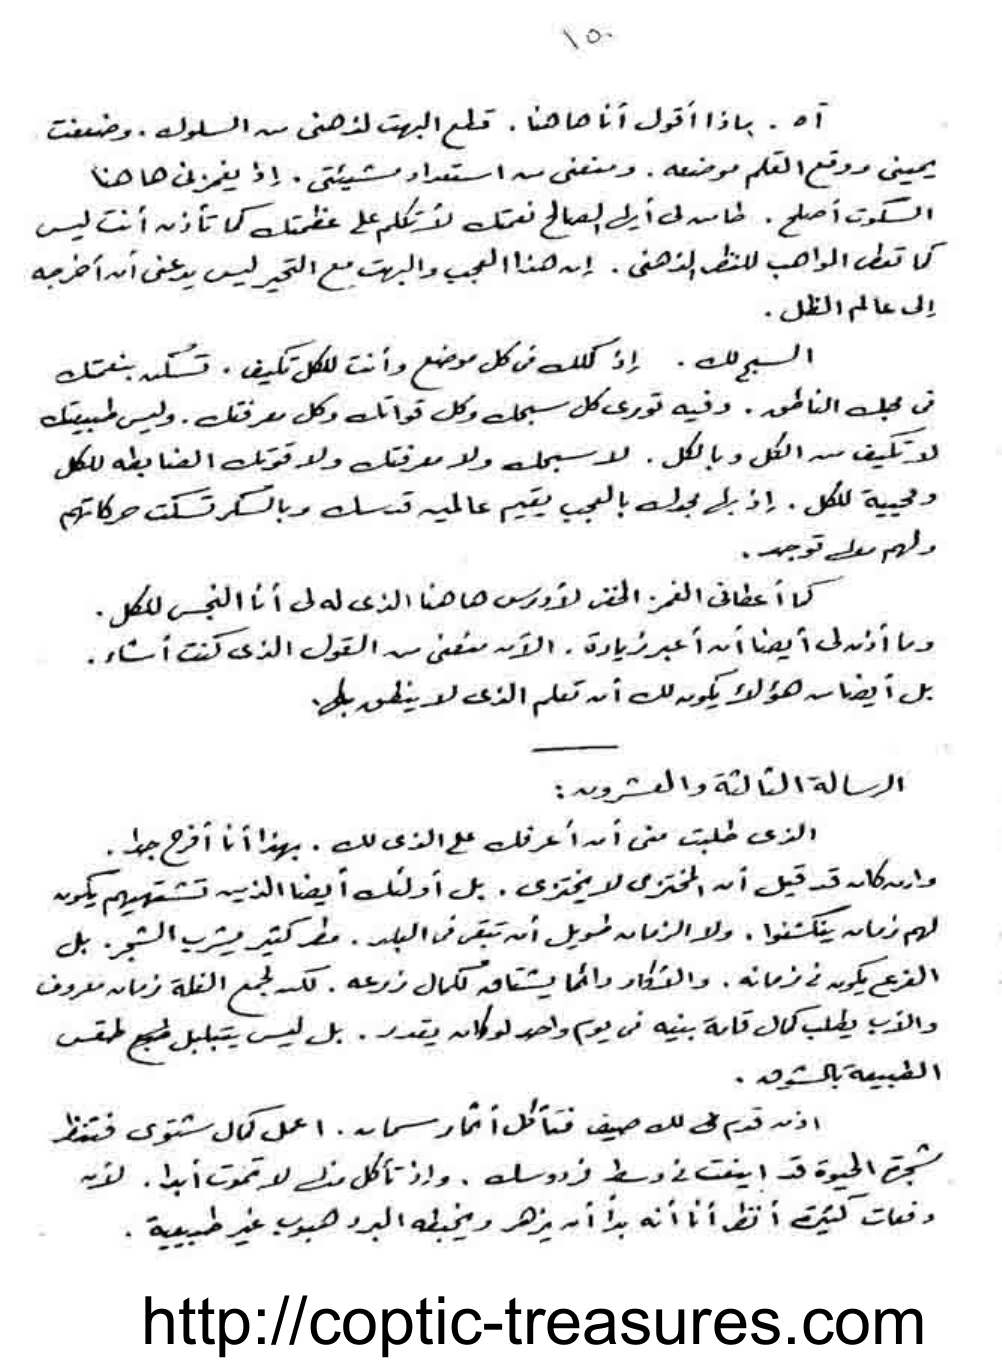 ١٥٠
آه . بماذا أقول أنا هاهنا . قطع البهت لذهنى من السلوك . وضعفت
يمينى ووقع القلم موضعه . ومنعنى من استعداد مشيئتى . إذ يغمزنى هاهنا
السكوت أصلح . لى أيها الصالح نعمتك لأتكلم على عظمتك كما تأذن أنت ليس
كما تعطى المواهب للنظر الذهنى . إن هذا العجب والبهت مع التحير ليس يدعنى أن أخرجه
إلى عالم الظل .
السبح لك . إذ كلك فى كل موضع وأنت للكل تكيف . تُسكن بنعمتك
فى محبك الناطق . وفيه تورى كل سبحك وكل قواتك وكل معرفتك . وليس طبيعتك
لا تكيف من الكل وبالكل . لا سبحك ولا معرفتك ولا قوتك الضابطه للكل
ومحيية للكل . إذ بهاء مجدك بالعجب يقيم عالمين قدسك وبالسكر تسكت حركاتهم
ولهم معك توحد .
كما أعطانى الغمز الخفى لأدرس هاهنا الذى له لى أنا النجس للكل .
وما أذن لى أيضا أن أعبر زيادة . الآن منعنى من القول الذى كنت أشاء .
بل أيضا من هؤلاء يكون لك أن تعلم الذى لا ينطق بها .
الرسالة الثالثة والعشرون :
الذى طلبت منى أن أعرفك على الذى لك . بهذا أنا أفرح جدا .
وإن كان قد قيل أن المختزى لا يختزى . بل أولئك أيضا الذين تشتهيهم يكون
لهم زمان ينكشفوا . ولا الزمان طويل أن تبقى فى البلد . مطر كثير يشرب الشجر . بل
الفرع يكون فى زمانه . والأكار دائما يشتاق لكمال زرعه . لكن لجمع الغلة زمان معروف
والأب يطلب كمال قامة بنيه فى يوم واحد لو كان يقدر . بل ليس يتبلبل طقس
الطبيعة بالشوق .
اذن قدم لك صيف فتأكل أثمار سمان . اعمل كمال شتوى فتنظر
شجرة الحيوة قد اينعت فى وسط فردوسك . وإذ تأكل منها لا تموت أبدا . لأن
دفعات كثيرة أنظر أنا أنه بدأ أن يزهر ويخبطه البرد هبوب غير طبيعية .
http://coptic-treasures.com